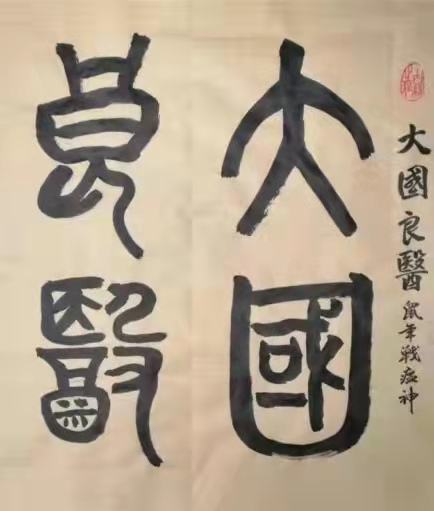 大國
良醫
大國良醫 鼠年戰瘟神